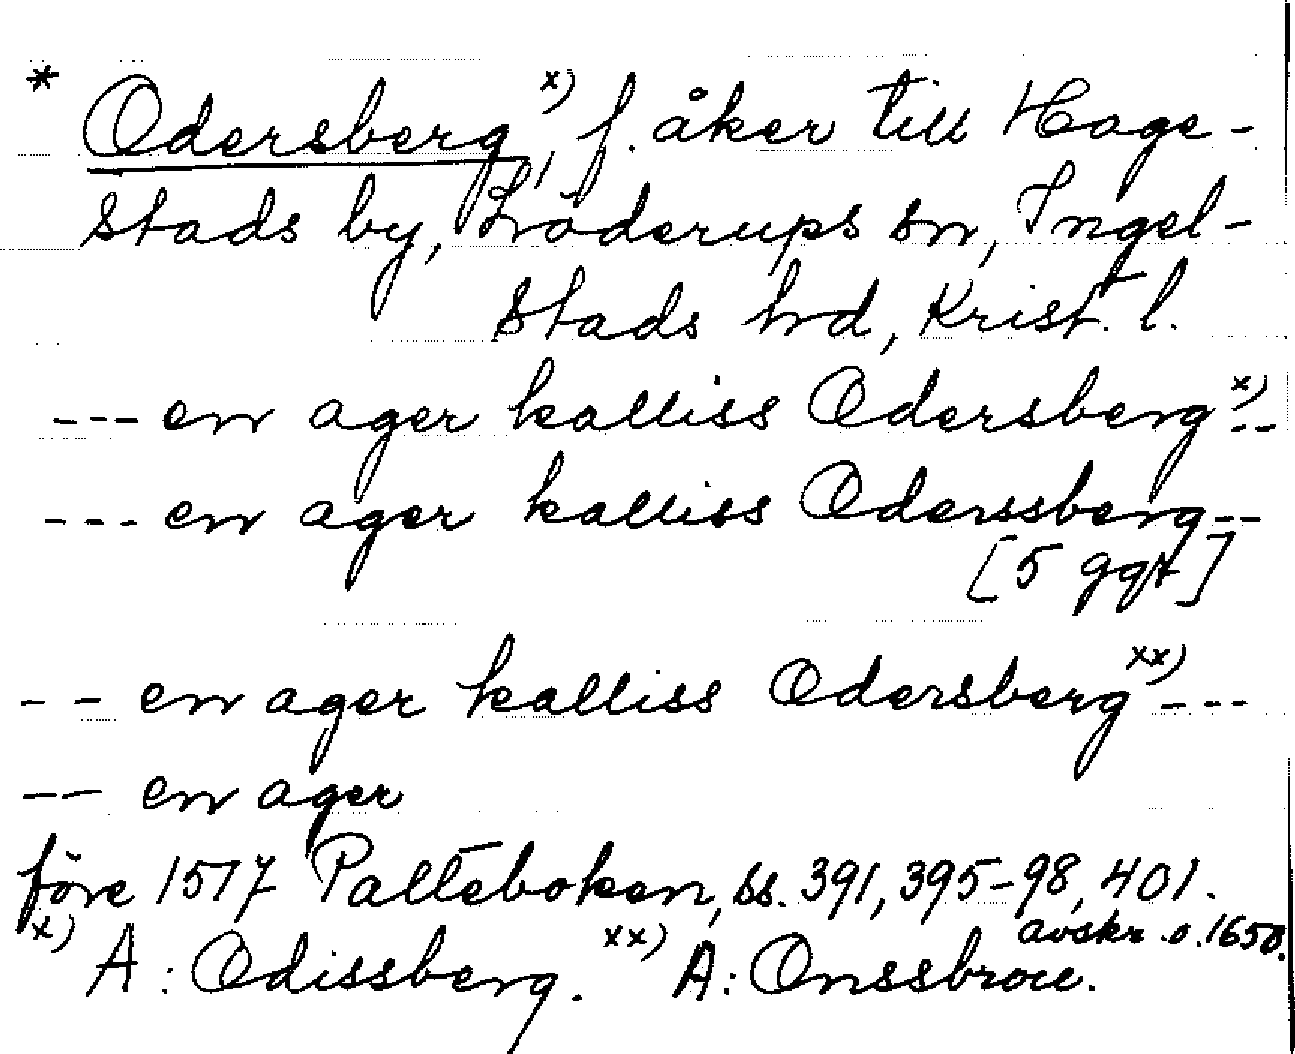 * Odersberg x), f. åker till Hage-
stads by, Löderups sn, Ingel-
stads hd, Krist. l.
--- en ager kalliss Odersberg x) --
--- en ager kalliss Oderssberg --
[5 ggr]
-- en ager kalliss Odersberg xx) ---
-- en ager
före 1517 Palteboken, ss. 391, 395-98, 401.
avskr. o. 1650.
x) A: Odissberg. xx) A: Onssbrou.